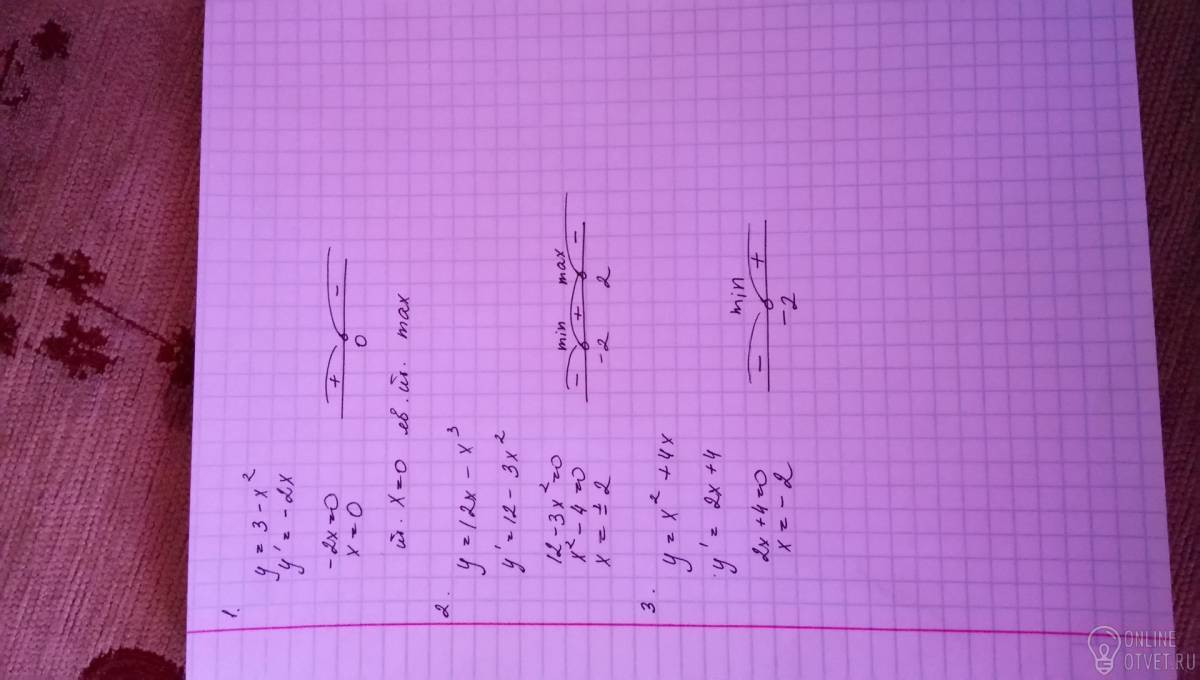 1.
y = 3 - x²
y' = -2x
-2x=0
x=0
+ -
0
т. x=0 яв. т. max
2.
y = 12x - x³
y' = 12 - 3x²
12 - 3x² = 0
x² - 4 = 0
x = ± 2
min max
- + -
-2 2
3.
y = x² + 4x
y' = 2x + 4
2x + 4 = 0
x = - 2
min
- +
-2
ONLINE
OTVET.RU